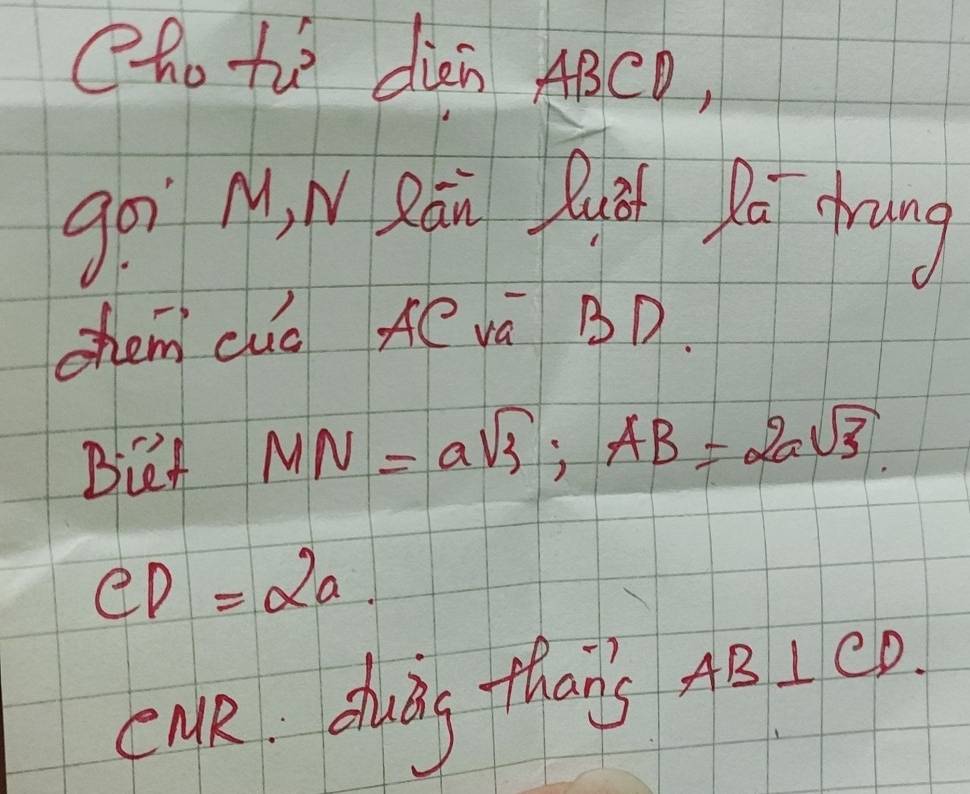 Cho tứ diện ABCD,
gọi M,N lần lượt là trung
điểm của AC và BD.
Biết MN = a√3 ; AB = 2a√3.
CD = 2a.
CMR : đường thẳng AB ⊥ CD.